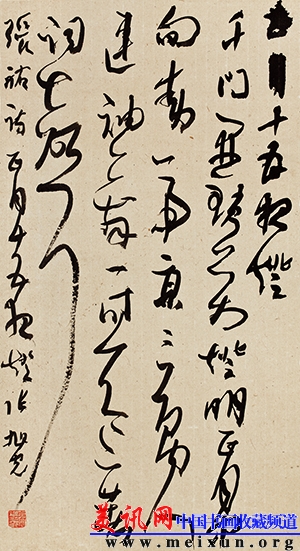 正月十五夜燈
千門開鎖萬燈明正月中
旬動帝京三百內人
連袖舞一時天上著
詞聲
張祜詩正月十五夜燈 張旭光
美讯网 中国书画收藏频道
www.meixun.org